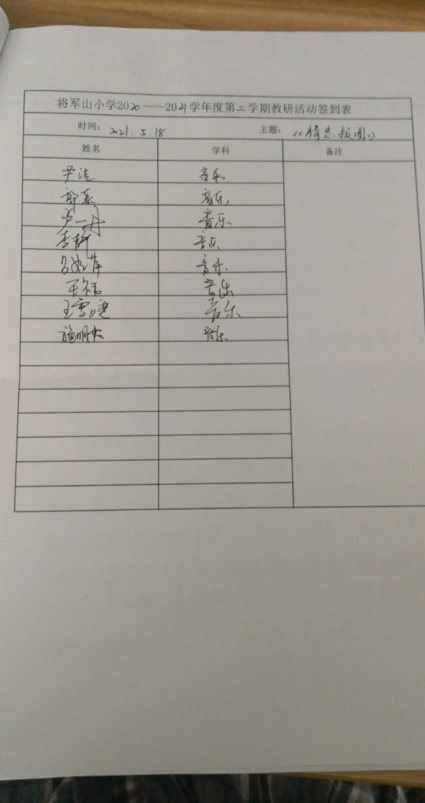 将军山小学2020——2021学年度第二学期教研活动签到表
时间: 2021.5.18 主题: 《精忠报国》
姓名 学科 备注
尹洁 音乐
音乐
卢一丹 音乐
音乐
音乐
音乐
王雪婕 音乐
音乐